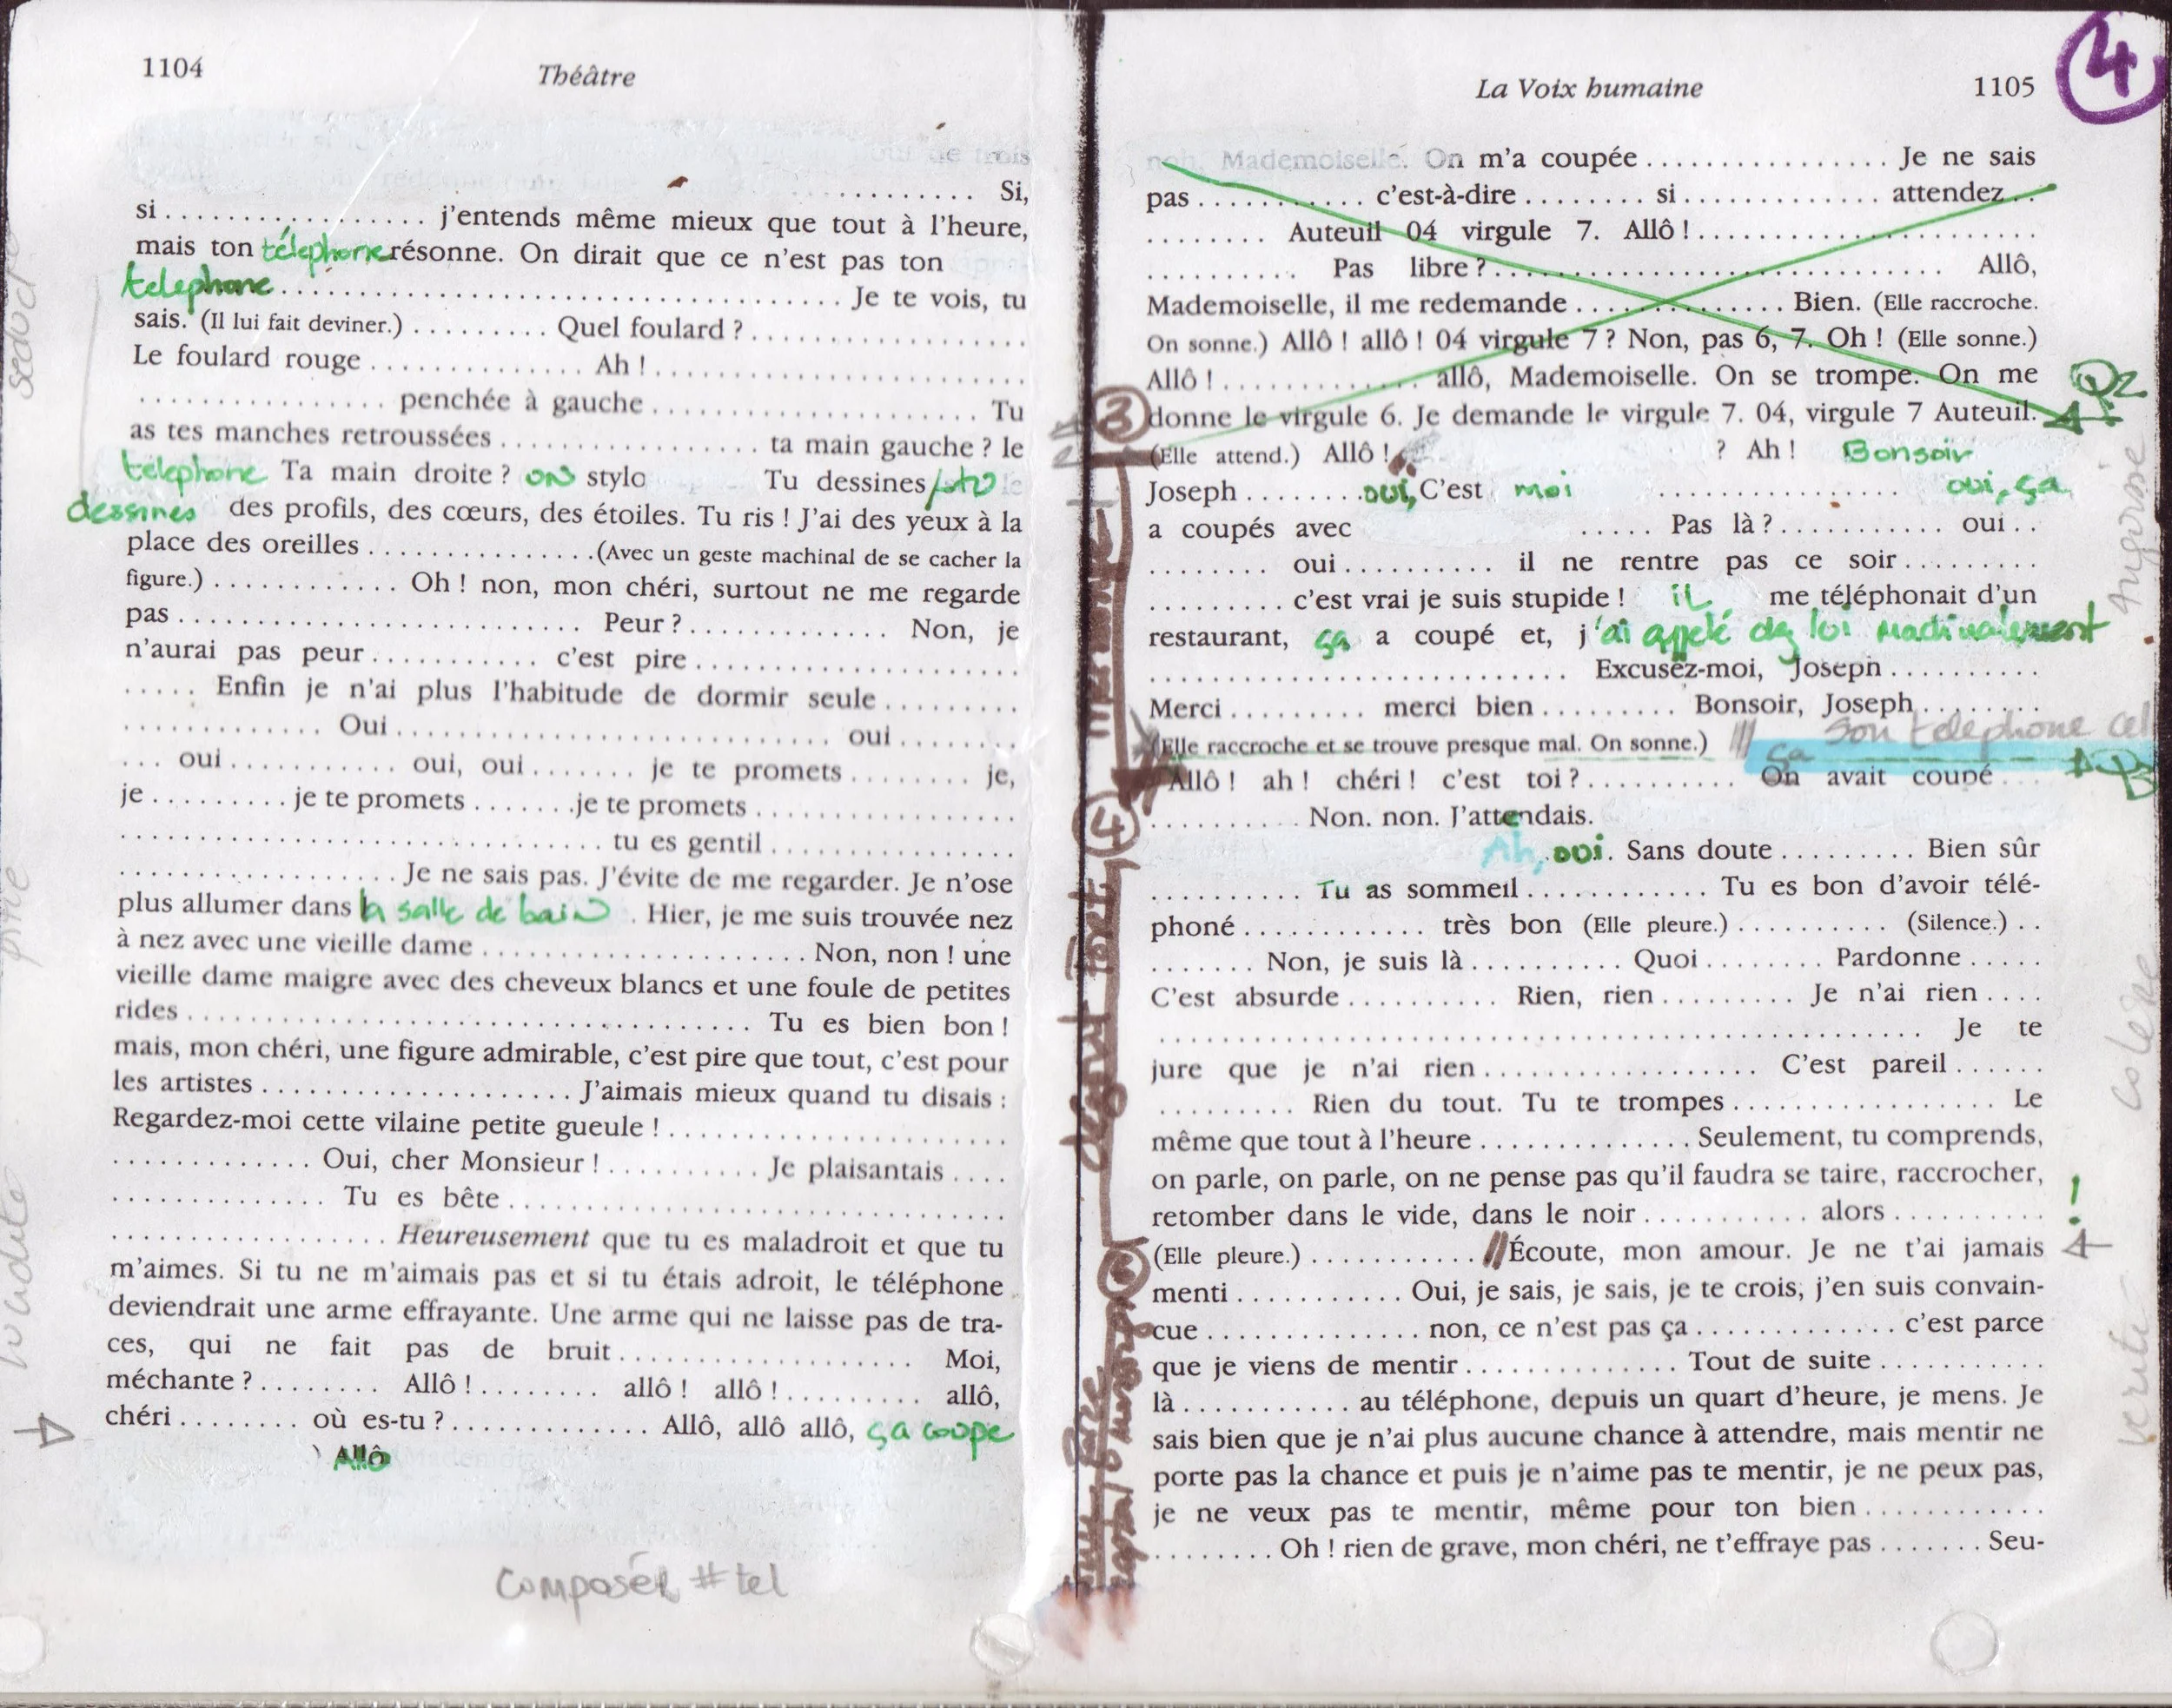 1104
Théâtre
. . . . . . . . . . . . Si,
si . . . . . . . . . . . . . . . . . j'entends même mieux que tout à l'heure,
mais ton téléphone résonne. On dirait que ce n'est pas ton
telephone . . . . . . . . . . . . . . . . . . . . . . . . . . . . . . . . . . . . Je te vois, tu
sais. (Il lui fait deviner.) . . . . . . . . . Quel foulard ? . . . . . . . . . . . . . . . . . .
Le foulard rouge . . . . . . . . . . . . . . Ah ! . . . . . . . . . . . . . . . . . . . . . . . . .
. . . . . . . . . . . . . . . . penchée à gauche . . . . . . . . . . . . . . . . . . . . . Tu
as tes manches retroussées . . . . . . . . . . . . . . . . . ta main gauche ? le
téléphone Ta main droite ? on stylo Tu dessines, tu
dessines des profils, des cœurs, des étoiles. Tu ris ! J'ai des yeux à la
place des oreilles . . . . . . . . . . . . . . (Avec un geste machinal de se cacher la
figure.) . . . . . . . . . . . . Oh ! non, mon chéri, surtout ne me regarde
pas . . . . . . . . . . . . . . . . . . . . . . . . . . Peur ? . . . . . . . . . . . . . . Non, je
n'aurai pas peur . . . . . . . . . . . c'est pire . . . . . . . . . . . . . . . . . . . . .
. . . . . Enfin je n'ai plus l'habitude de dormir seule . . . . . . . . .
. . . . . . . . . . . . . Oui . . . . . . . . . . . . . . . . . . . . . . . . . . . . oui . . . . . . . .
. . . oui . . . . . . . . . . . oui, oui . . . . . . . je te promets . . . . . . . . je,
je . . . . . . . . . je te promets . . . . . . . je te promets . . . . . . . . . . . . . . . . .
. . . . . . . . . . . . . . . . . . . . . . . . . . . . . . . tu es gentil . . . . . . . . . . . . . . . .
. . . . . . . . . . . . . . . . . . Je ne sais pas. J'évite de me regarder. Je n'ose
plus allumer dans la salle de bain . Hier, je me suis trouvée nez
à nez avec une vieille dame . . . . . . . . . . . . . . . . . . . . . Non, non ! une
vieille dame maigre avec des cheveux blancs et une foule de petites
rides . . . . . . . . . . . . . . . . . . . . . . . . . . . . . . . . . . . . . Tu es bien bon !
mais, mon chéri, une figure admirable, c'est pire que tout, c'est pour
les artistes . . . . . . . . . . . . . . . . . . . . J'aimais mieux quand tu disais :
Regardez-moi cette vilaine petite gueule ! . . . . . . . . . . . . . . . . . . . . . .
. . . . . . . . . . . . . Oui, cher Monsieur ! . . . . . . . . . . Je plaisantais . . . .
. . . . . . . . . . . . . . Tu es bête . . . . . . . . . . . . . . . . . . . . . . . . . . . . . . . .
. . . . . . . . . . . . . . . . . . Heureusement que tu es maladroit et que tu
m'aimes. Si tu ne m'aimais pas et si tu étais adroit, le téléphone
deviendrait une arme effrayante. Une arme qui ne laisse pas de tra-
ces, qui ne fait pas de bruit . . . . . . . . . . . . . . . . . . . Moi,
méchante ? . . . . . . . . Allô ! . . . . . . . . allô ! allô ! . . . . . . . . . allô,
chéri . . . . . . . . où es-tu ? . . . . . . . . . . . . . Allô, allô allô, ça coupe
) Allô
composer # tel
La Voix humaine
1105
4
noh. Mademoiselle. On m'a coupée . . . . . . . . . . . . . . . . Je ne sais
pas . . . . . . . . . . . c'est-à-dire . . . . . . . . si . . . . . . . . . . . . . attendez . .
. . . . . . . . Auteuil 04 virgule 7. Allô ! . . . . . . . . . . . . . . . . . . . . . .
. . . . . . . . . . Pas libre ? . . . . . . . . . . . . . . . . . . . . . . . . . . . . . . Allô,
Mademoiselle, il me redemande . . . . . . . . . . . . . . Bien. (Elle raccroche.
On sonne.) Allô ! allô ! 04 virgule 7 ? Non, pas 6, 7. Oh ! (Elle sonne.)
Allô ! . . . . . . . . . . . . . allô, Mademoiselle. On se trompe. On me
3 donne le virgule 6. Je demande le virgule 7. 04, virgule 7 Auteuil.
(Elle attend.) Allô ! ? Ah ! Bonsoir
Joseph . . . . . . . . oui, C'est moi . . . . . . . . . . . . . . . . oui, ça
a coupés avec . . . . . Pas là ? . . . . . . . . . . . oui . .
. . . . . . . . oui . . . . . . . . . . il ne rentre pas ce soir . . . . . . . . .
. . . . . . . . . c'est vrai je suis stupide ! il me téléphonait d'un
restaurant, ça a coupé et, j'ai appelé chez lui machinalement
. . . . . . . . . . . . . . . . . . . . . . . . . . . . Excusez-moi, Joseph . . . . . . . . . .
Merci . . . . . . . . . merci bien . . . . . . . . . Bonsoir, Joseph . . . . . . . .
(Elle raccroche et se trouve presque mal. On sonne.) ça son telephone cel
Allô ! ah ! chéri ! c'est toi ? . . . . . . . . . . On avait coupé . . .
4 . . . . . . . . . . Non. non. J'attendais.
Ah, oui. Sans doute . . . . . . . . . Bien sûr
. . . . . . . . . . Tu as sommeil . . . . . . . . . . . . Tu es bon d'avoir télé-
phoné . . . . . . . . . . . . très bon (Elle pleure.) . . . . . . . . . . (Silence.) . .
. . . . . . . Non, je suis là . . . . . . . . . . Quoi . . . . . . . . Pardonne . . . . .
C'est absurde . . . . . . . . . . . Rien, rien . . . . . . . . . Je n'ai rien . . . .
. . . . . . . . . . . . . . . . . . . . . . . . . . . . . . . . . . . . . . . . . . . . . Je te
jure que je n'ai rien . . . . . . . . . . . . . . . . . C'est pareil . . . . . .
. . . . . . . . . Rien du tout. Tu te trompes . . . . . . . . . . . . . . . . . Le
même que tout à l'heure . . . . . . . . . . . . . . Seulement, tu comprends,
on parle, on parle, on ne pense pas qu'il faudra se taire, raccrocher,
retomber dans le vide, dans le noir . . . . . . . . . . . alors . . . . . . . . . . !
(Elle pleure.) . . . . . . . . . . . Écoute, mon amour. Je ne t'ai jamais
menti . . . . . . . . . . . Oui, je sais, je sais, je te crois, j'en suis convain-
cue . . . . . . . . . . . . . . non, ce n'est pas ça . . . . . . . . . . . . . c'est parce
que je viens de mentir . . . . . . . . . . . . . . Tout de suite . . . . . . . . . . .
là . . . . . . . . . . . au téléphone, depuis un quart d'heure, je mens. Je
sais bien que je n'ai plus aucune chance à attendre, mais mentir ne
porte pas la chance et puis je n'aime pas te mentir, je ne peux pas,
je ne veux pas te mentir, même pour ton bien . . . . . . . . . . . .
. . . . . . . . Oh ! rien de grave, mon chéri, ne t'effraye pas . . . . . . . Seu-
Angoisse
colère
verité